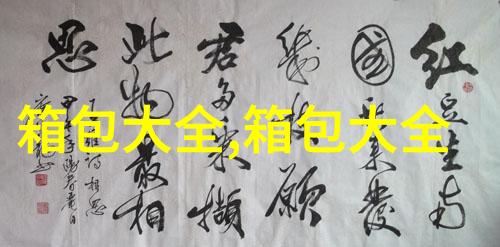 红豆生南
国春来发
几枝愿
君多采撷
此物最相
思
箱包大全,箱包大全